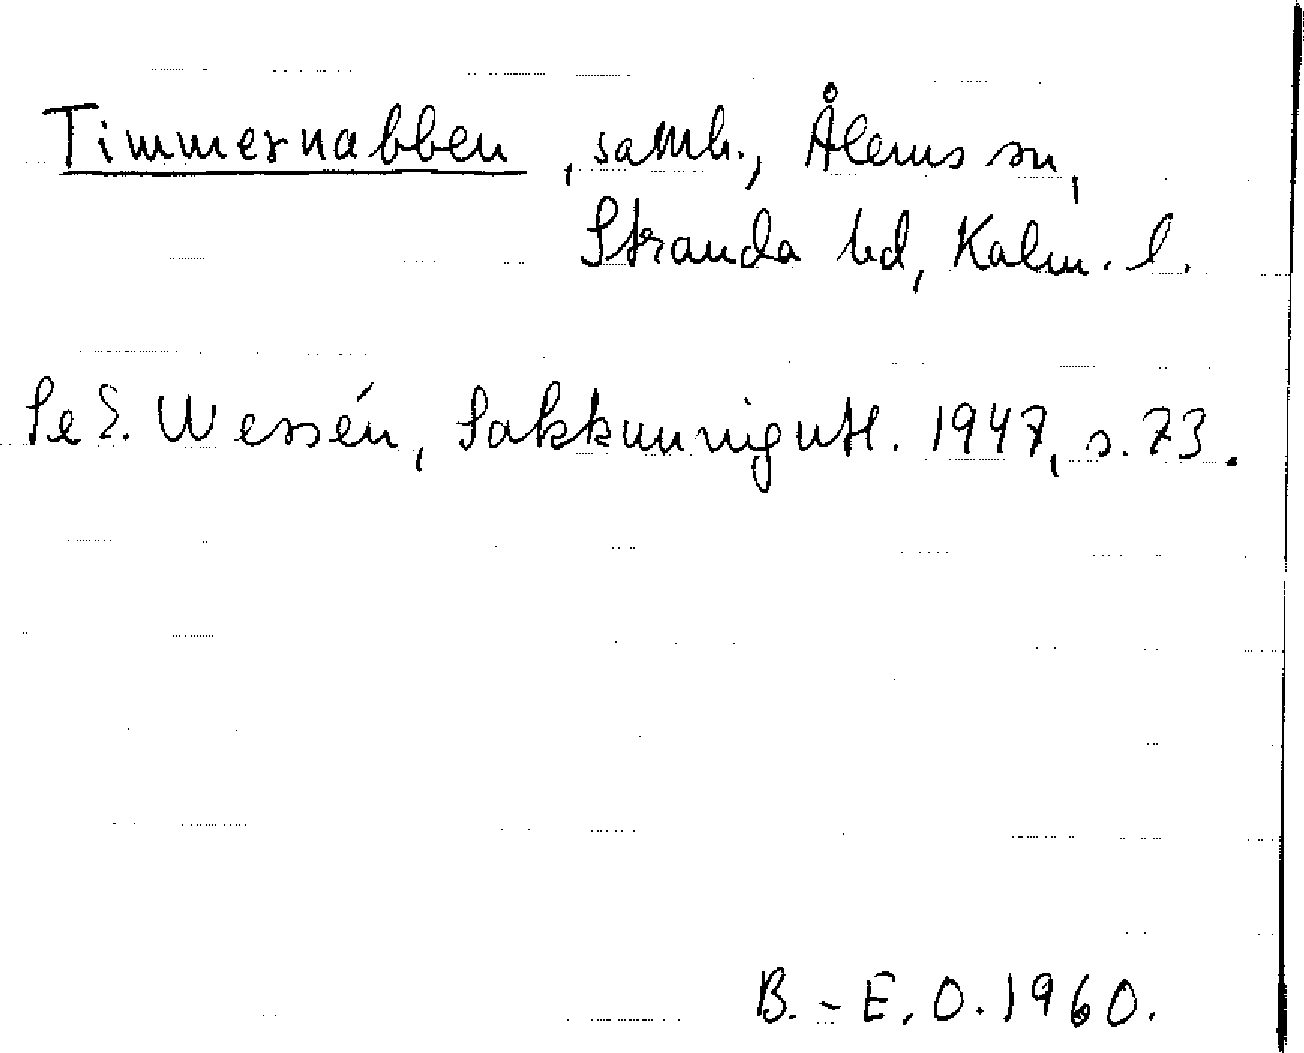 Timmernabben, samh., Ålems sn,
Stranda hd, Kalm. l.
Se E. Wessén, Sakkunnigutl. 1947, s. 73.
B.-E. O. 1960.